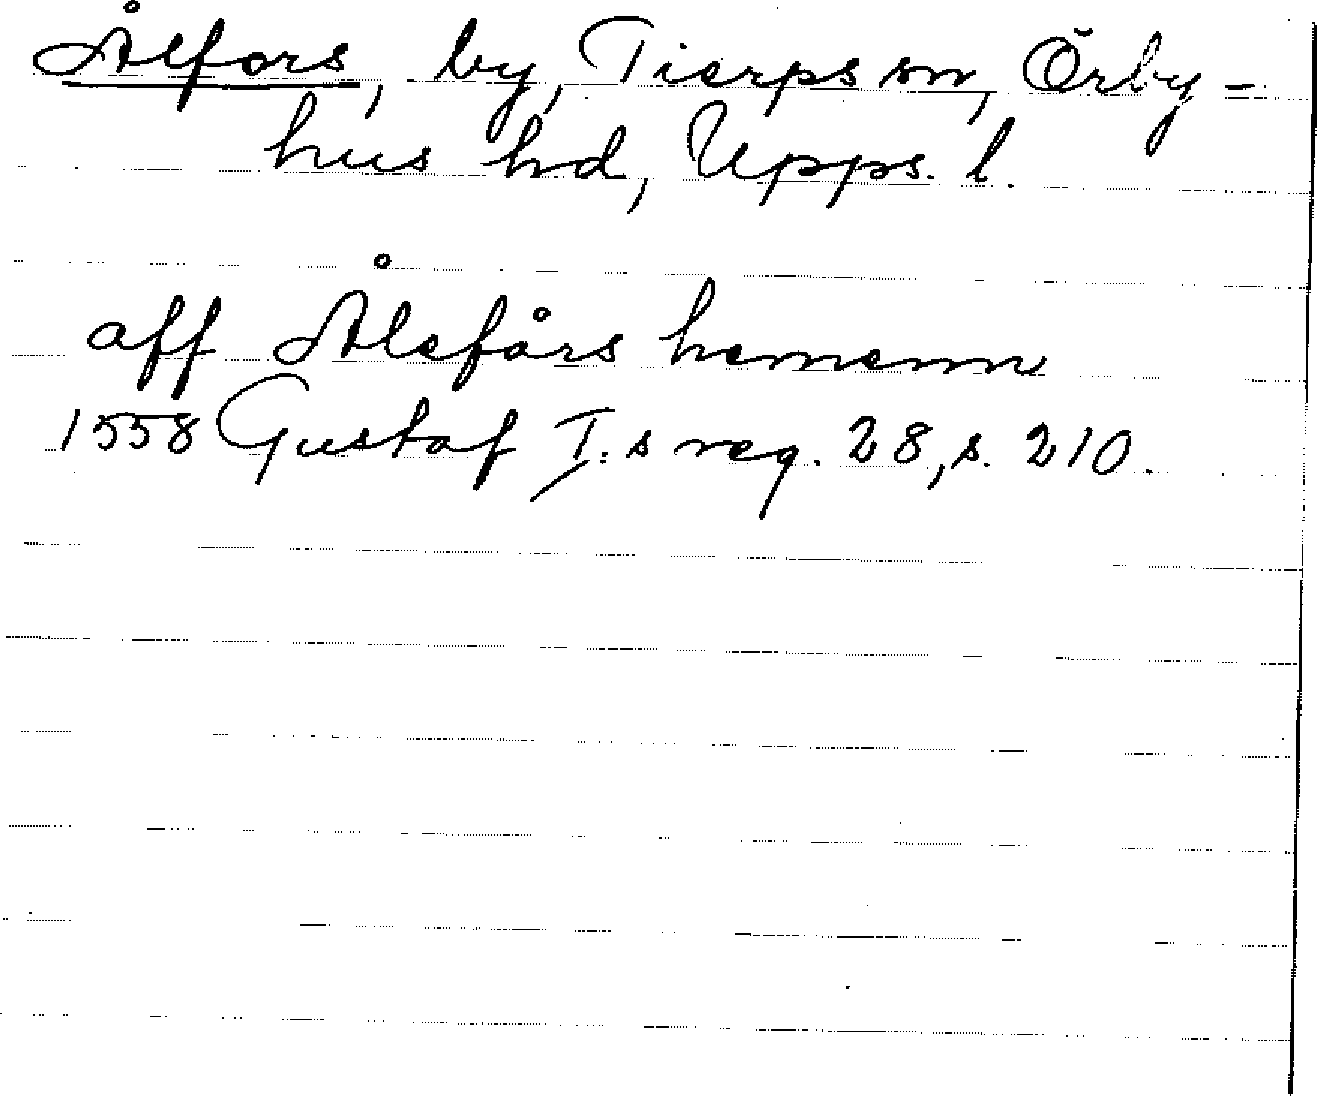 Ålfors, by, Tierps sn, Örby-
hus hd, Upps. l.
aff Ålefårs hemenn
1558 Gustaf I:s reg. 28, s. 210.